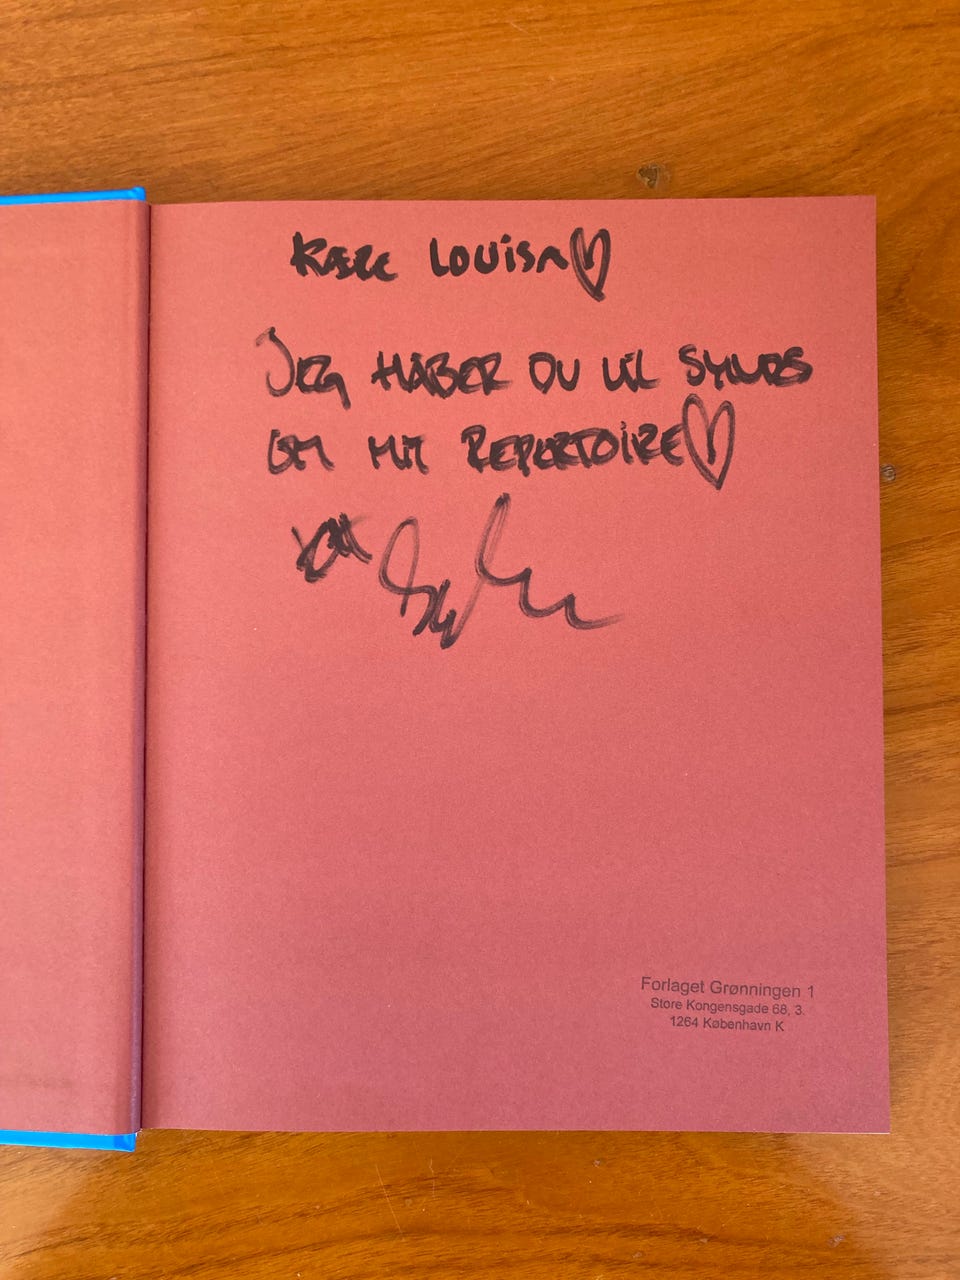 Kære Louisa
JEG HÅBER DU VIL SYNES
OM MIT REPERTOIRE
Forlaget Grønningen 1
Store Kongensgade 68, 3.
1264 København K